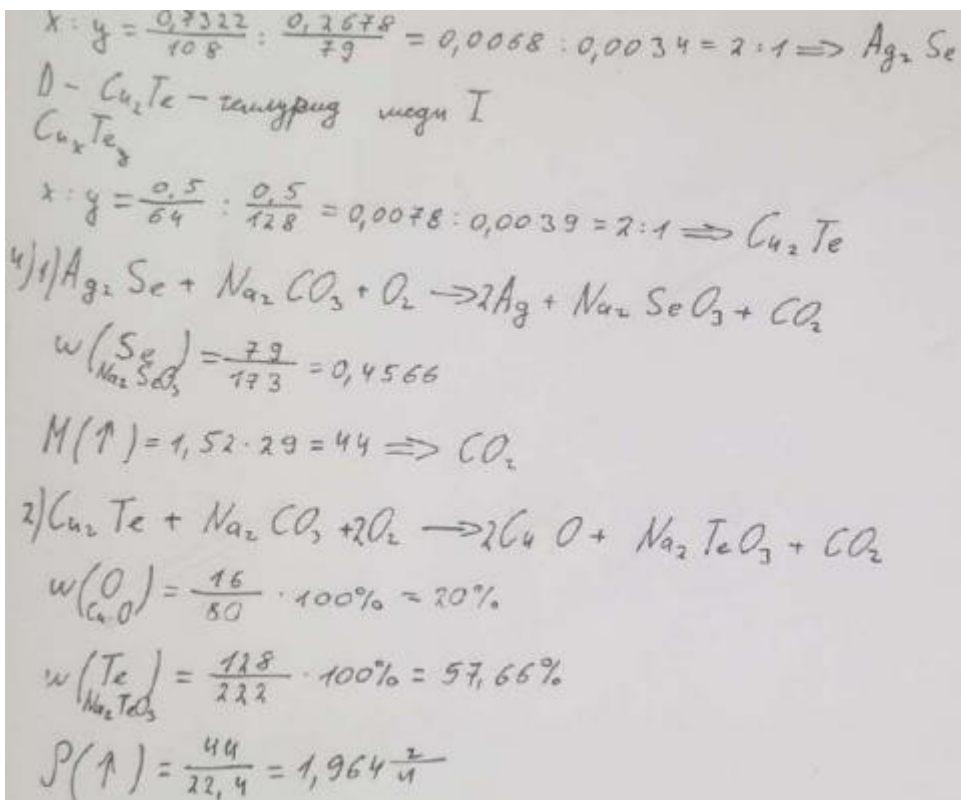 x : y = 0,7322/108 : 0,2678/79 = 0,0068 : 0,0034 = 2 : 1 ⟹ Ag₂Se
D - Cu₂Te - теллурид меди I
CuₓTeᵧ
x : y = 0,5/64 : 0,5/128 = 0,0078 : 0,0039 = 2 : 1 ⟹ Cu₂Te
4) 1) Ag₂Se + Na₂CO₃ + O₂ → 2Ag + Na₂SeO₃ + CO₂
w(Se Na₂SeO₃) = 79/173 = 0,4566
M(↑) = 1,52 · 29 = 44 ⟹ CO₂
2) Cu₂Te + Na₂CO₃ + 2O₂ → 2CuO + Na₂TeO₃ + CO₂
w(O CuO) = 16/80 · 100% = 20%
w(Te Na₂TeO₃) = 128/222 · 100% = 57,66%
ρ(↑) = 44/22,4 = 1,964 г/л